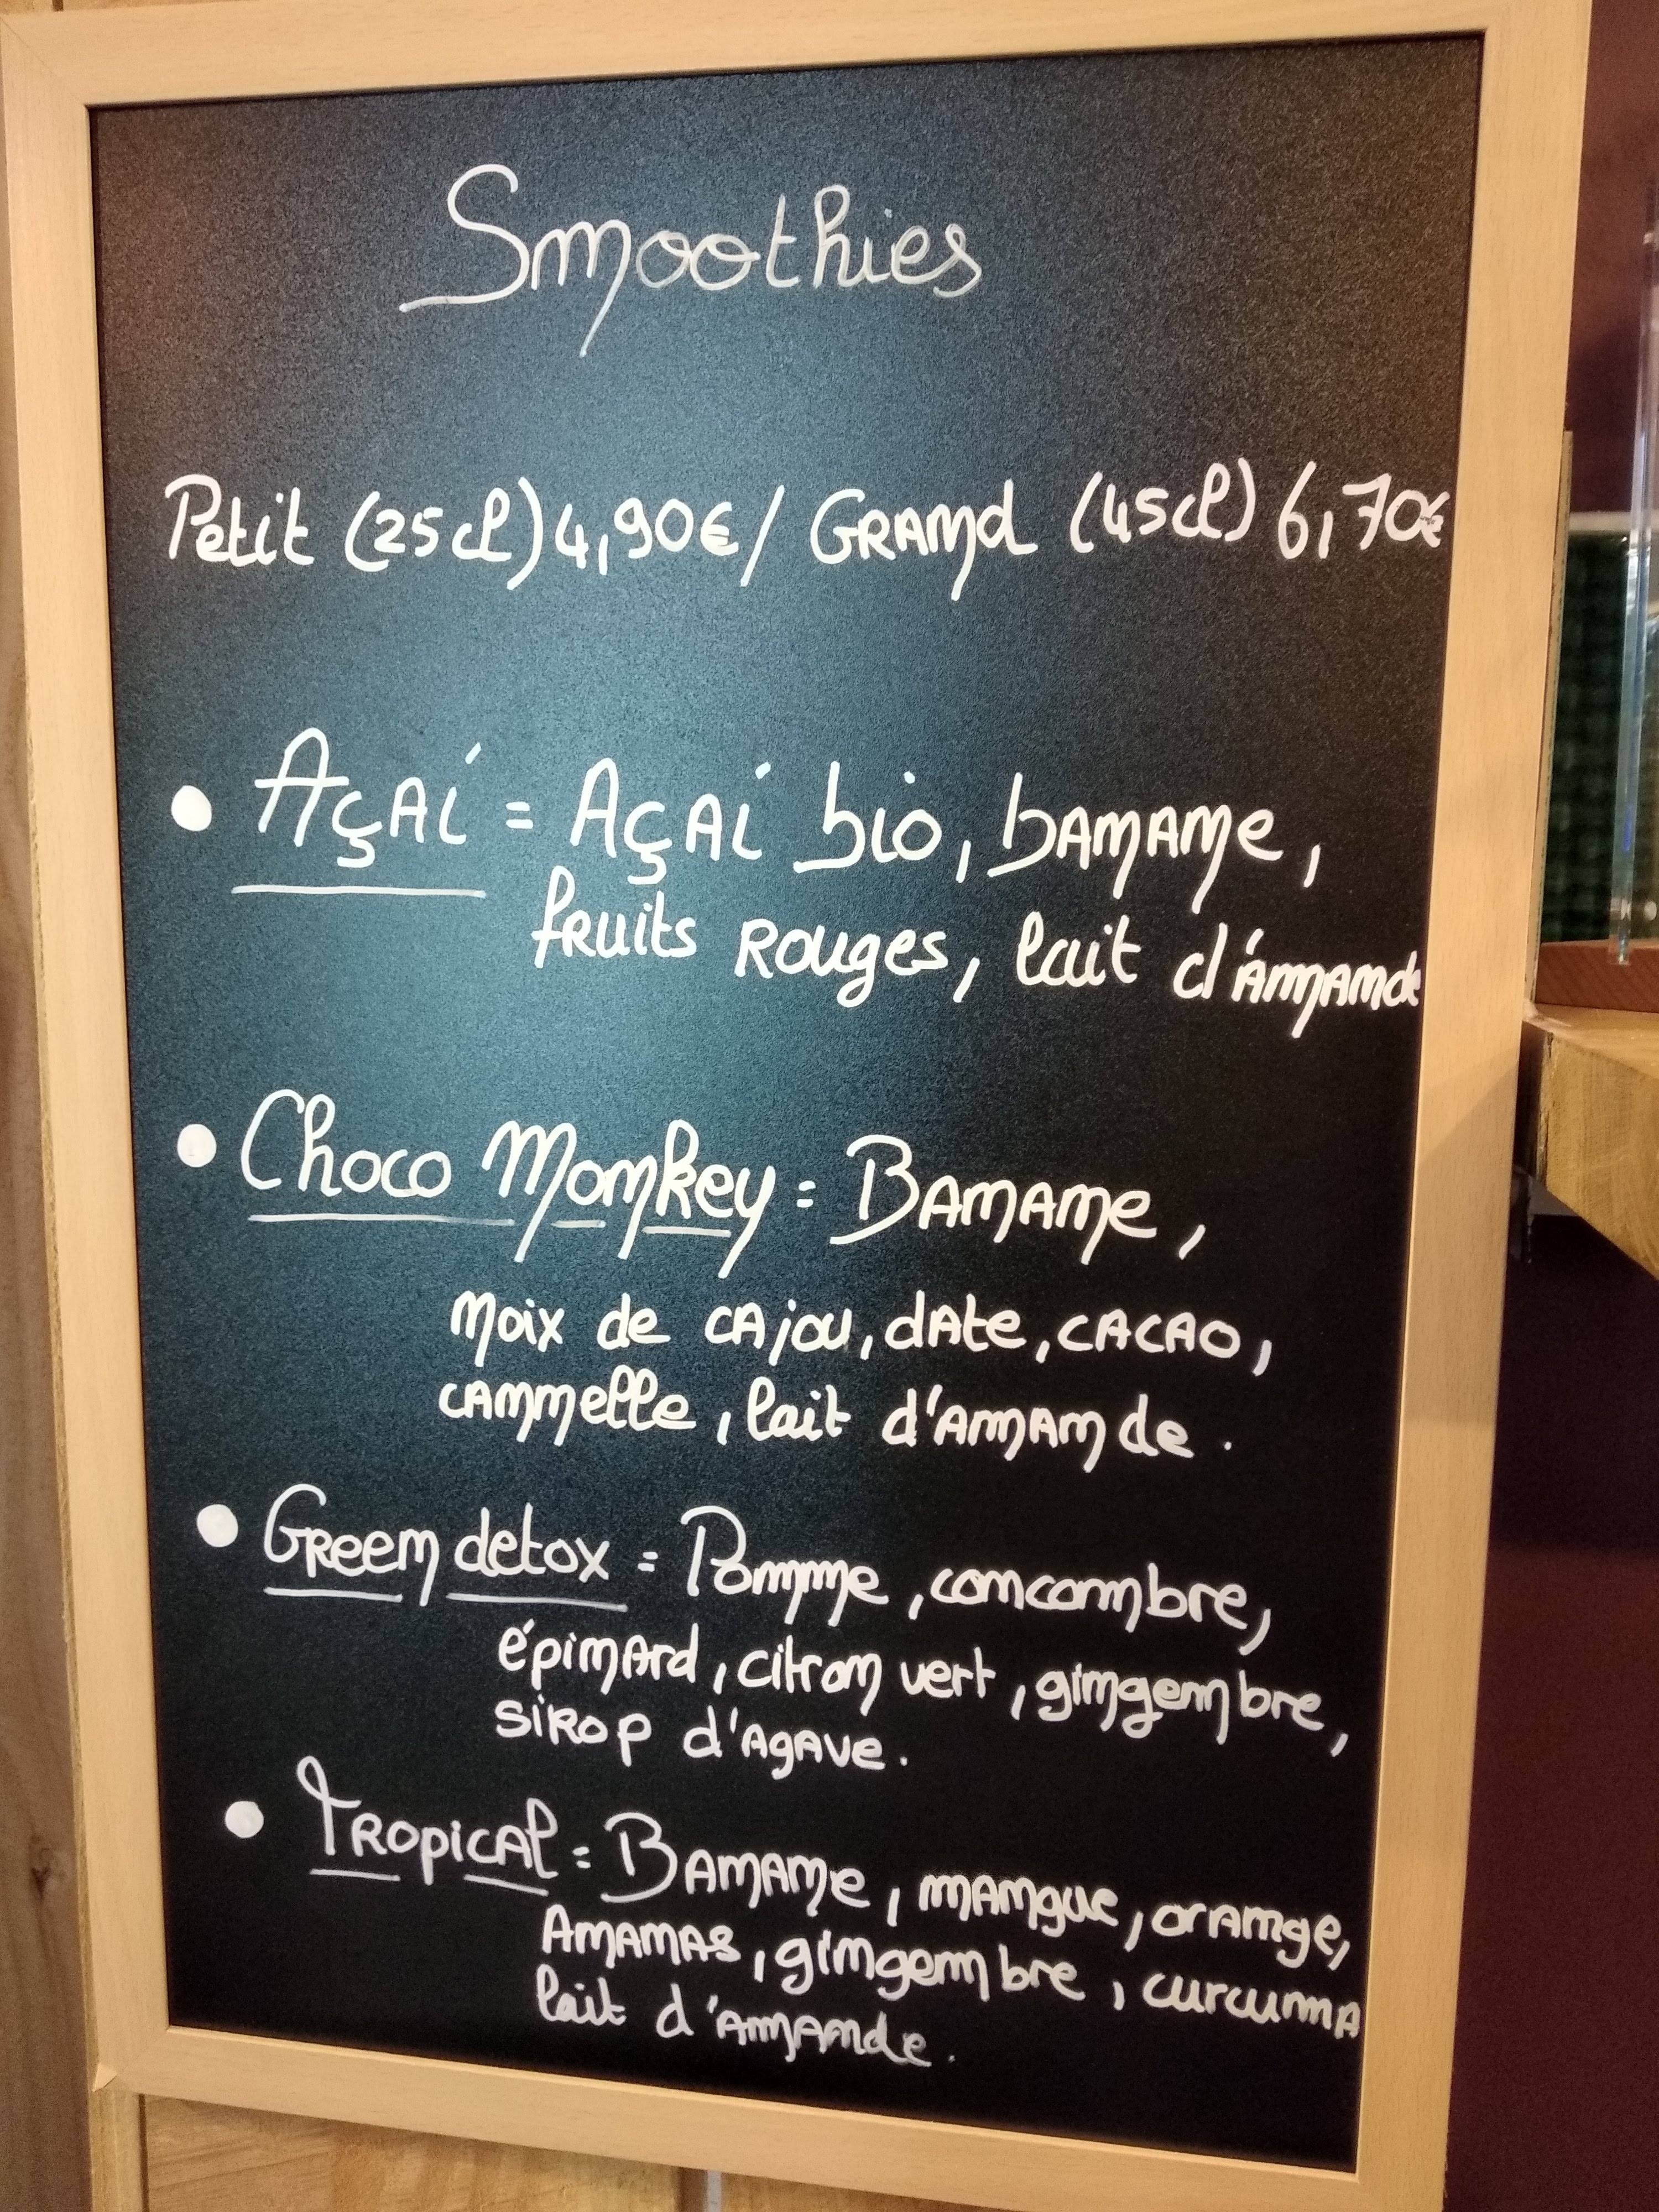 Smoothies
Petit (25cl) 4,90€ / GRANd (45cl) 6,70€
• AÇAí = AÇAí bio, bANANe,
fRuits Rouges, lait d'ámande
• Choco Monkey = BANANe,
noix de cajou, date, cacao,
cannelle, lait d'amande.
• Green detox = Pomme, concombre,
épinard, citron vert, gingembre,
sirop d'agave.
• Tropical = Banane, mangue, orange,
Ananas, gingembre, curcuma
lait d'amande.